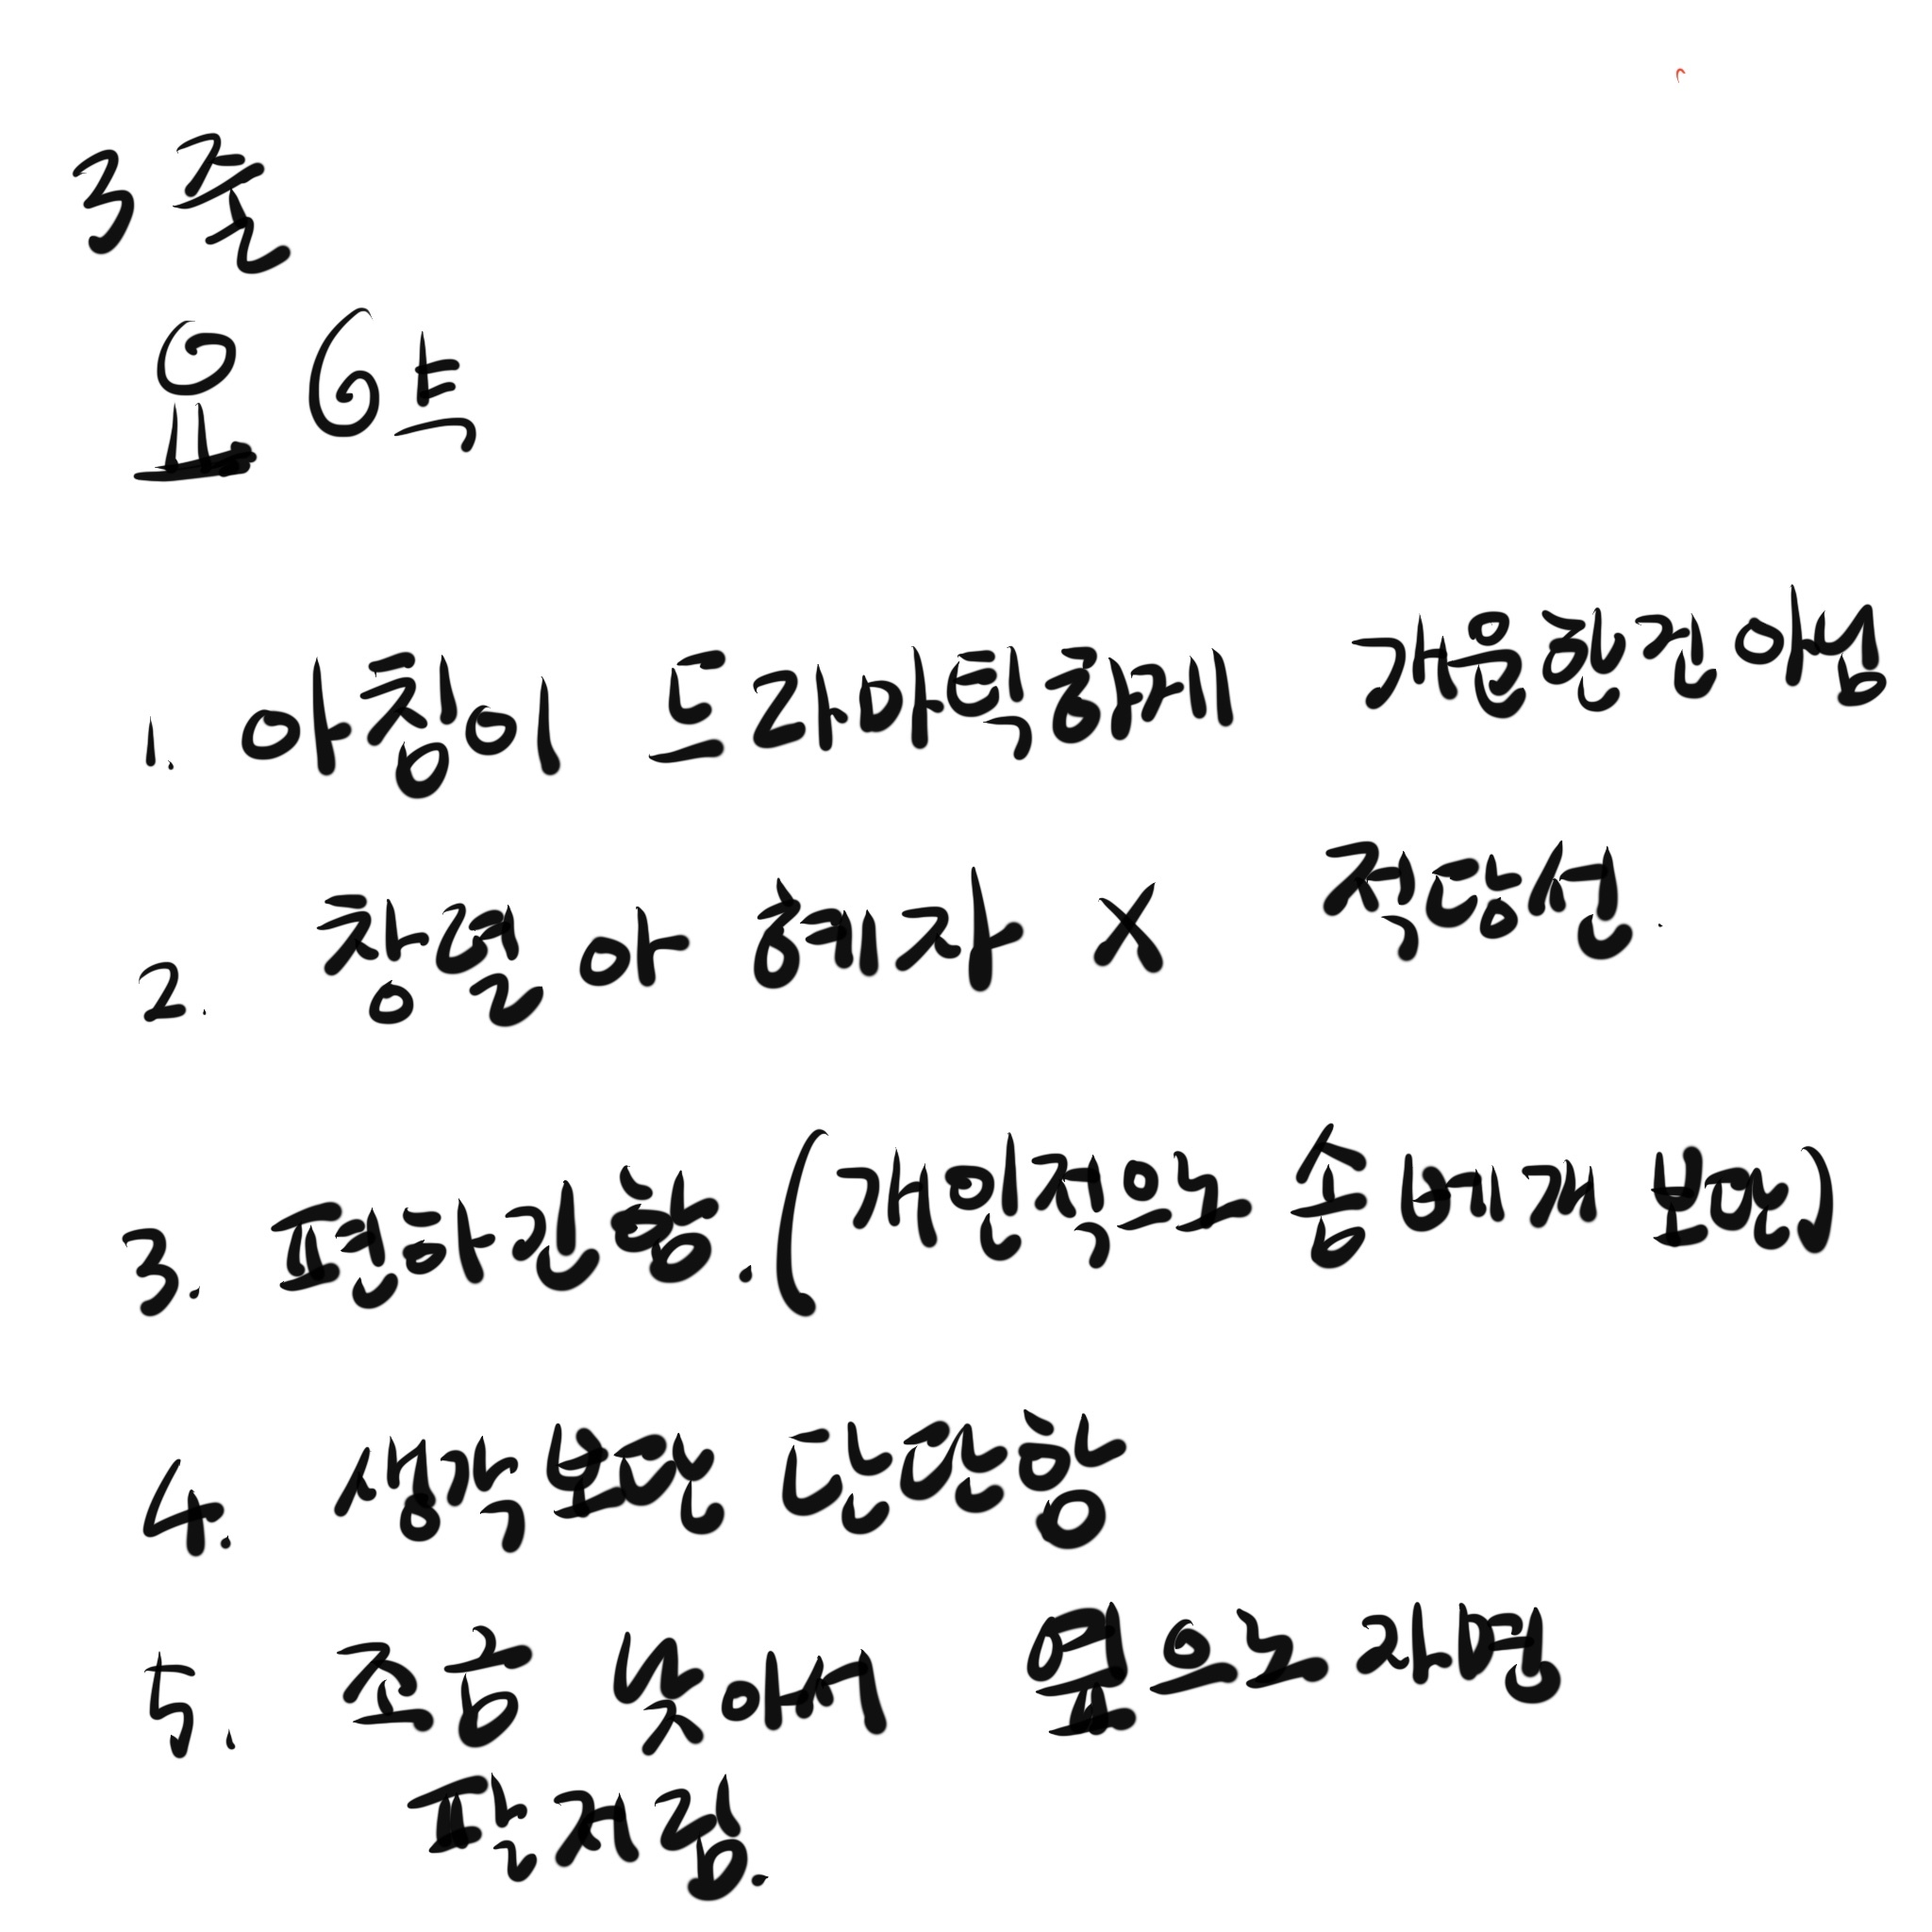 3줄
요약
1. 아침이 드라마틱하게 개운한건 아님
2. 창렬 아 혜자 X 적당선.
3. 편하긴함.(개인적으로 솜베개 보단)
4. 생각보단 단단함
5. 조금 낮아서 옆으로 자면
팔저림.